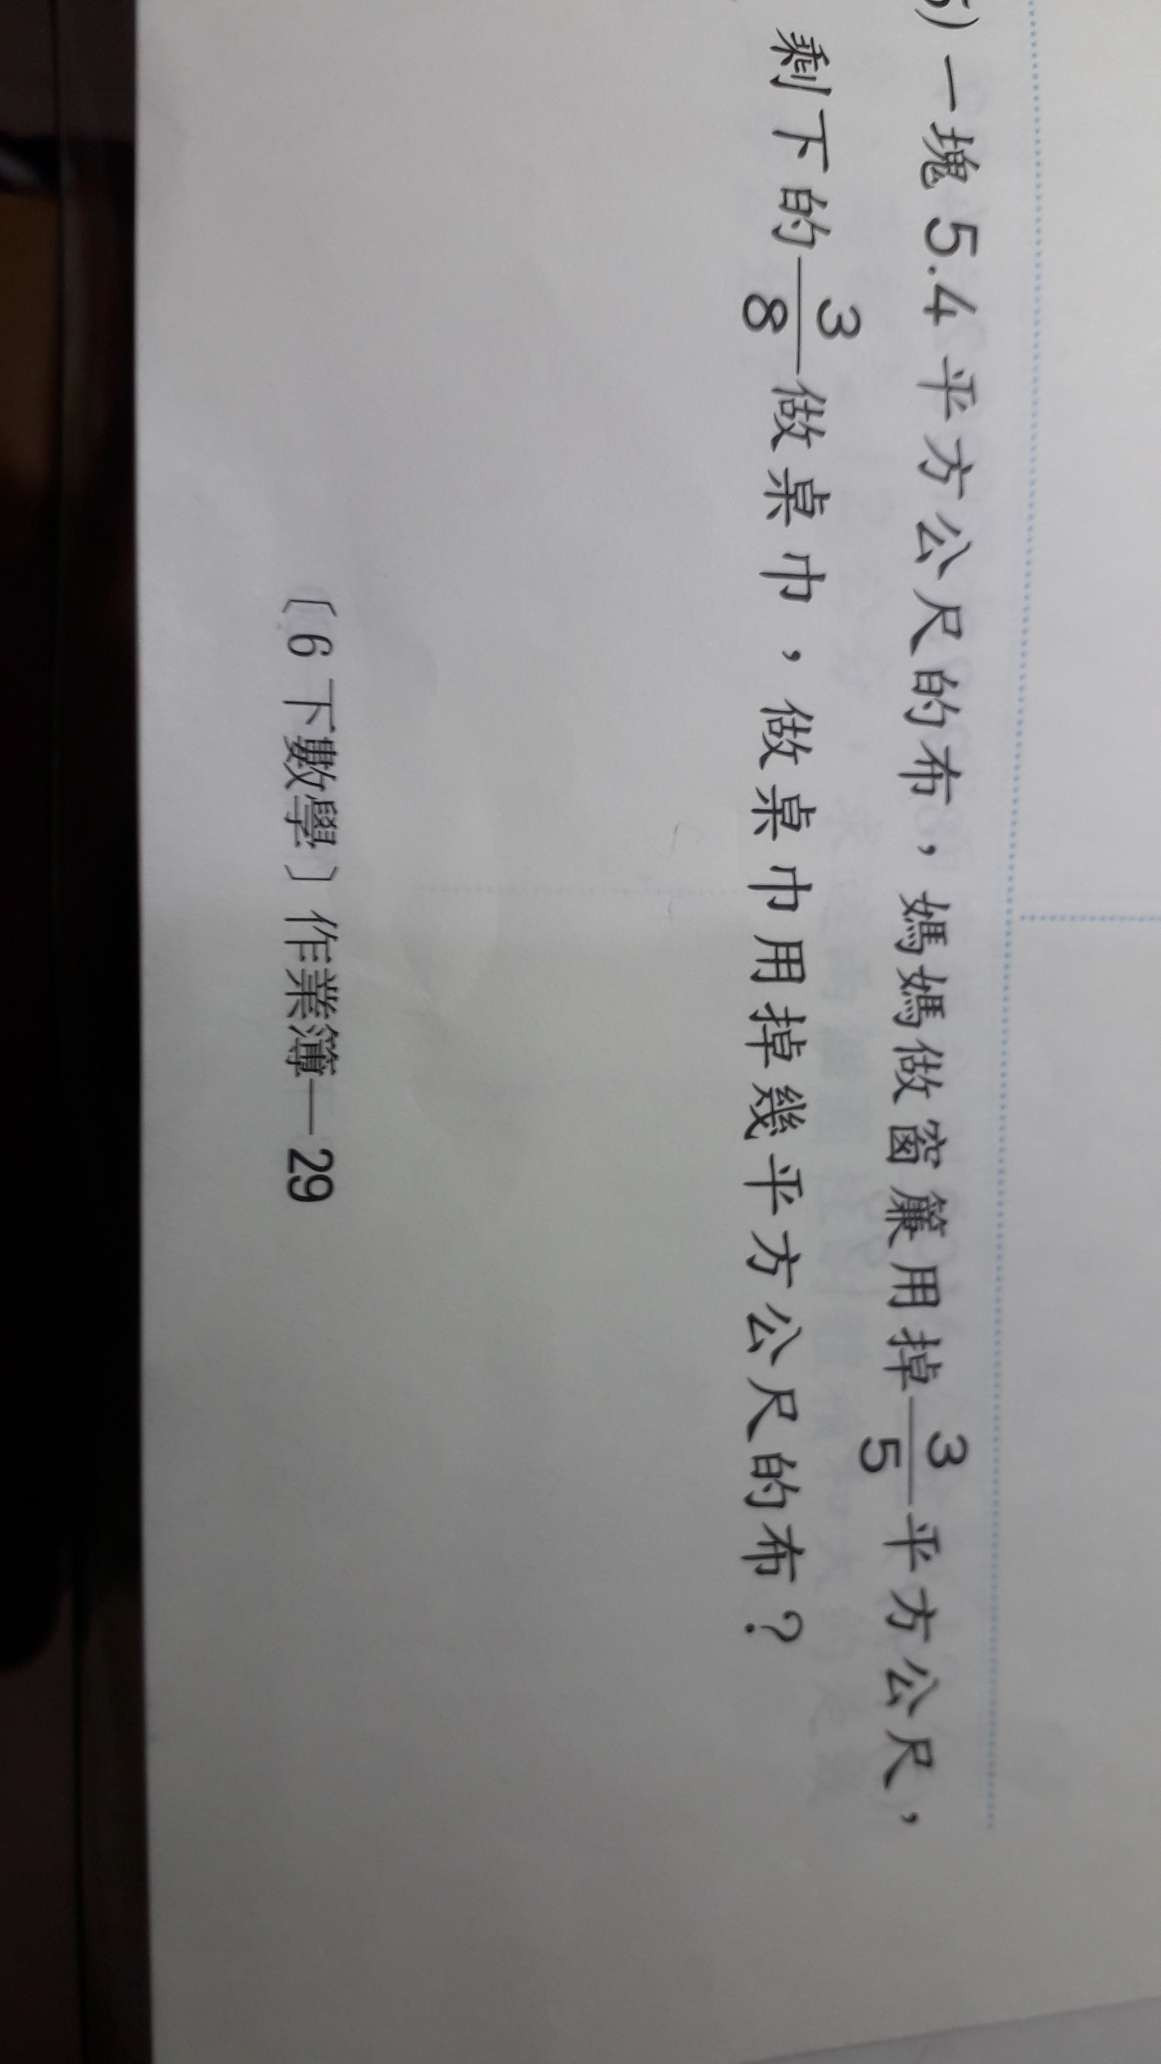 ) 一塊 5.4 平方公尺的布，媽媽做窗簾用掉 3/5 平方公尺，
剩下的 3/8 做桌巾，做桌巾用掉幾平方公尺的布？
〔6 下數學〕作業簿—29